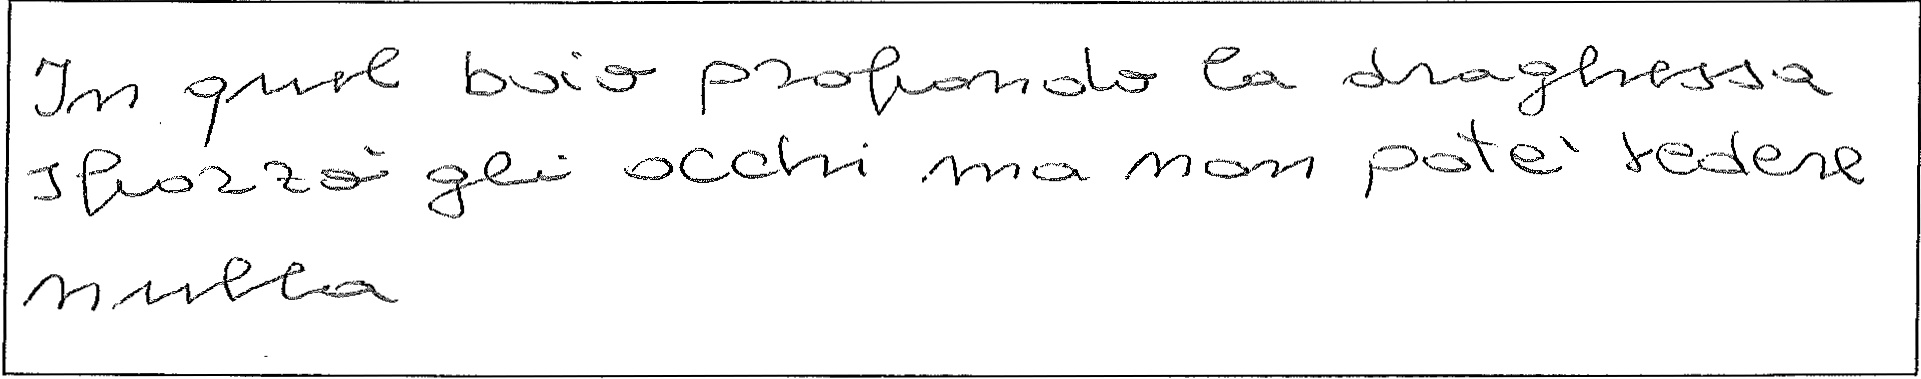 In quel buio profondo la draghessa
sfozzò gli occhi ma non potè vedere
nulla